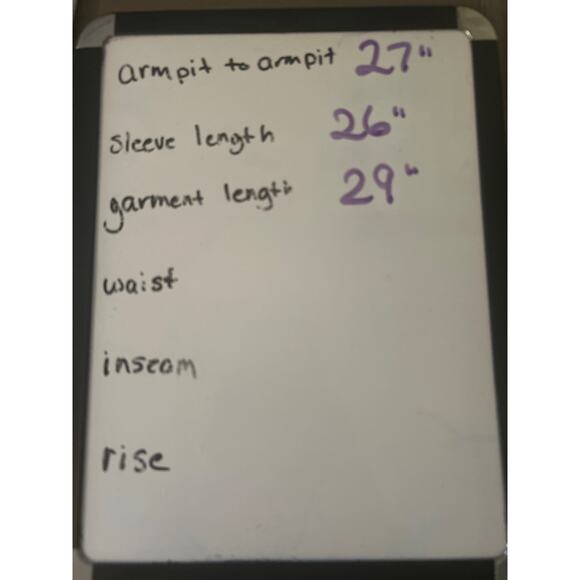 armpit to armpit 27"
sleeve length 26"
garment length 29"
waist
inseam
rise